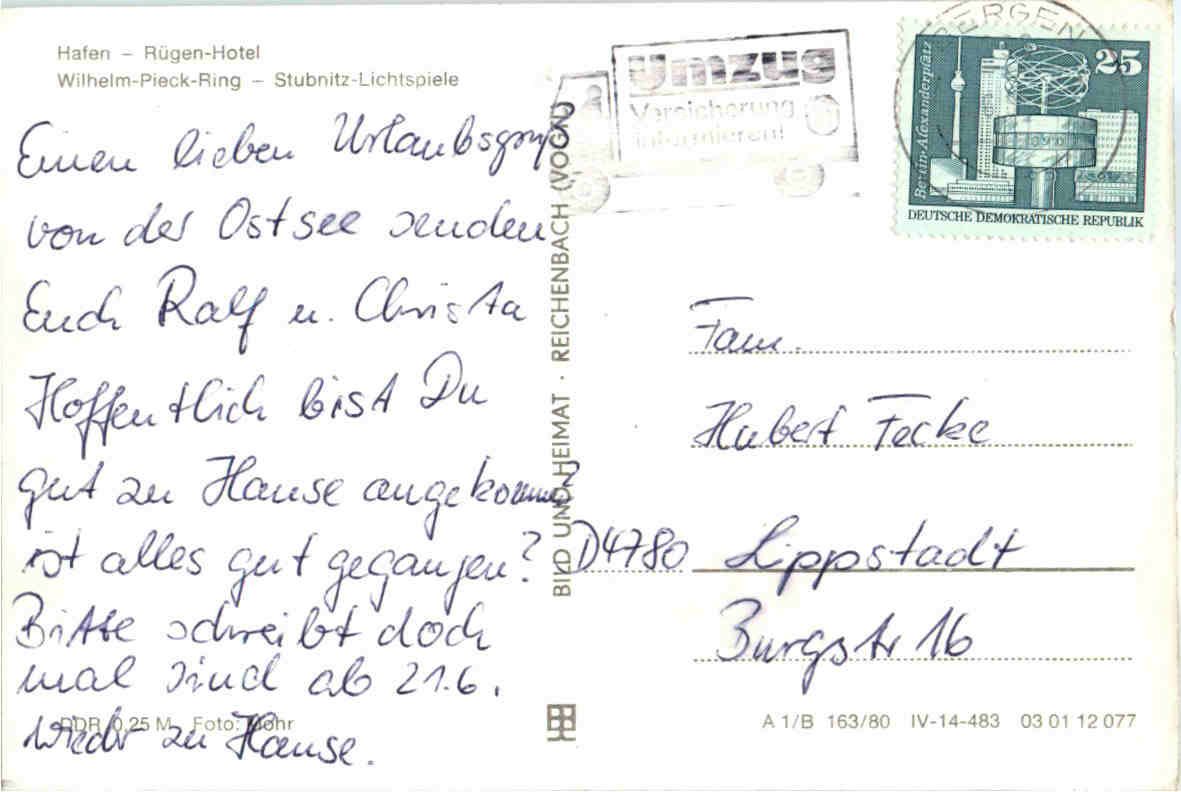 Hafen – Rügen-Hotel
Wilhelm-Pieck-Ring – Stubnitz-Lichtspiele
Einen lieben Urlaubsgruß
von der Ostsee senden
Euch Ralf u. Christa
Hoffentlich bist Du
gut zu Hause angekommen?
ist alles gut gegangen?
Bitte schreibt doch
mal sind ab 21.6.
wieder zu Hause.
DDR 0,25 M Foto: Mohr
BILD UND HEIMAT · REICHENBACH (VOGTL)
Umzug
Versicherung
informieren!
BERGEN
25
Berlin-Alexanderplatz
DEUTSCHE DEMOKRATISCHE REPUBLIK
Fam.
Hubert Fecke
D4780 Lippstadt
Burgstr 16
A 1/B 163/80 IV-14-483 03 01 12 077